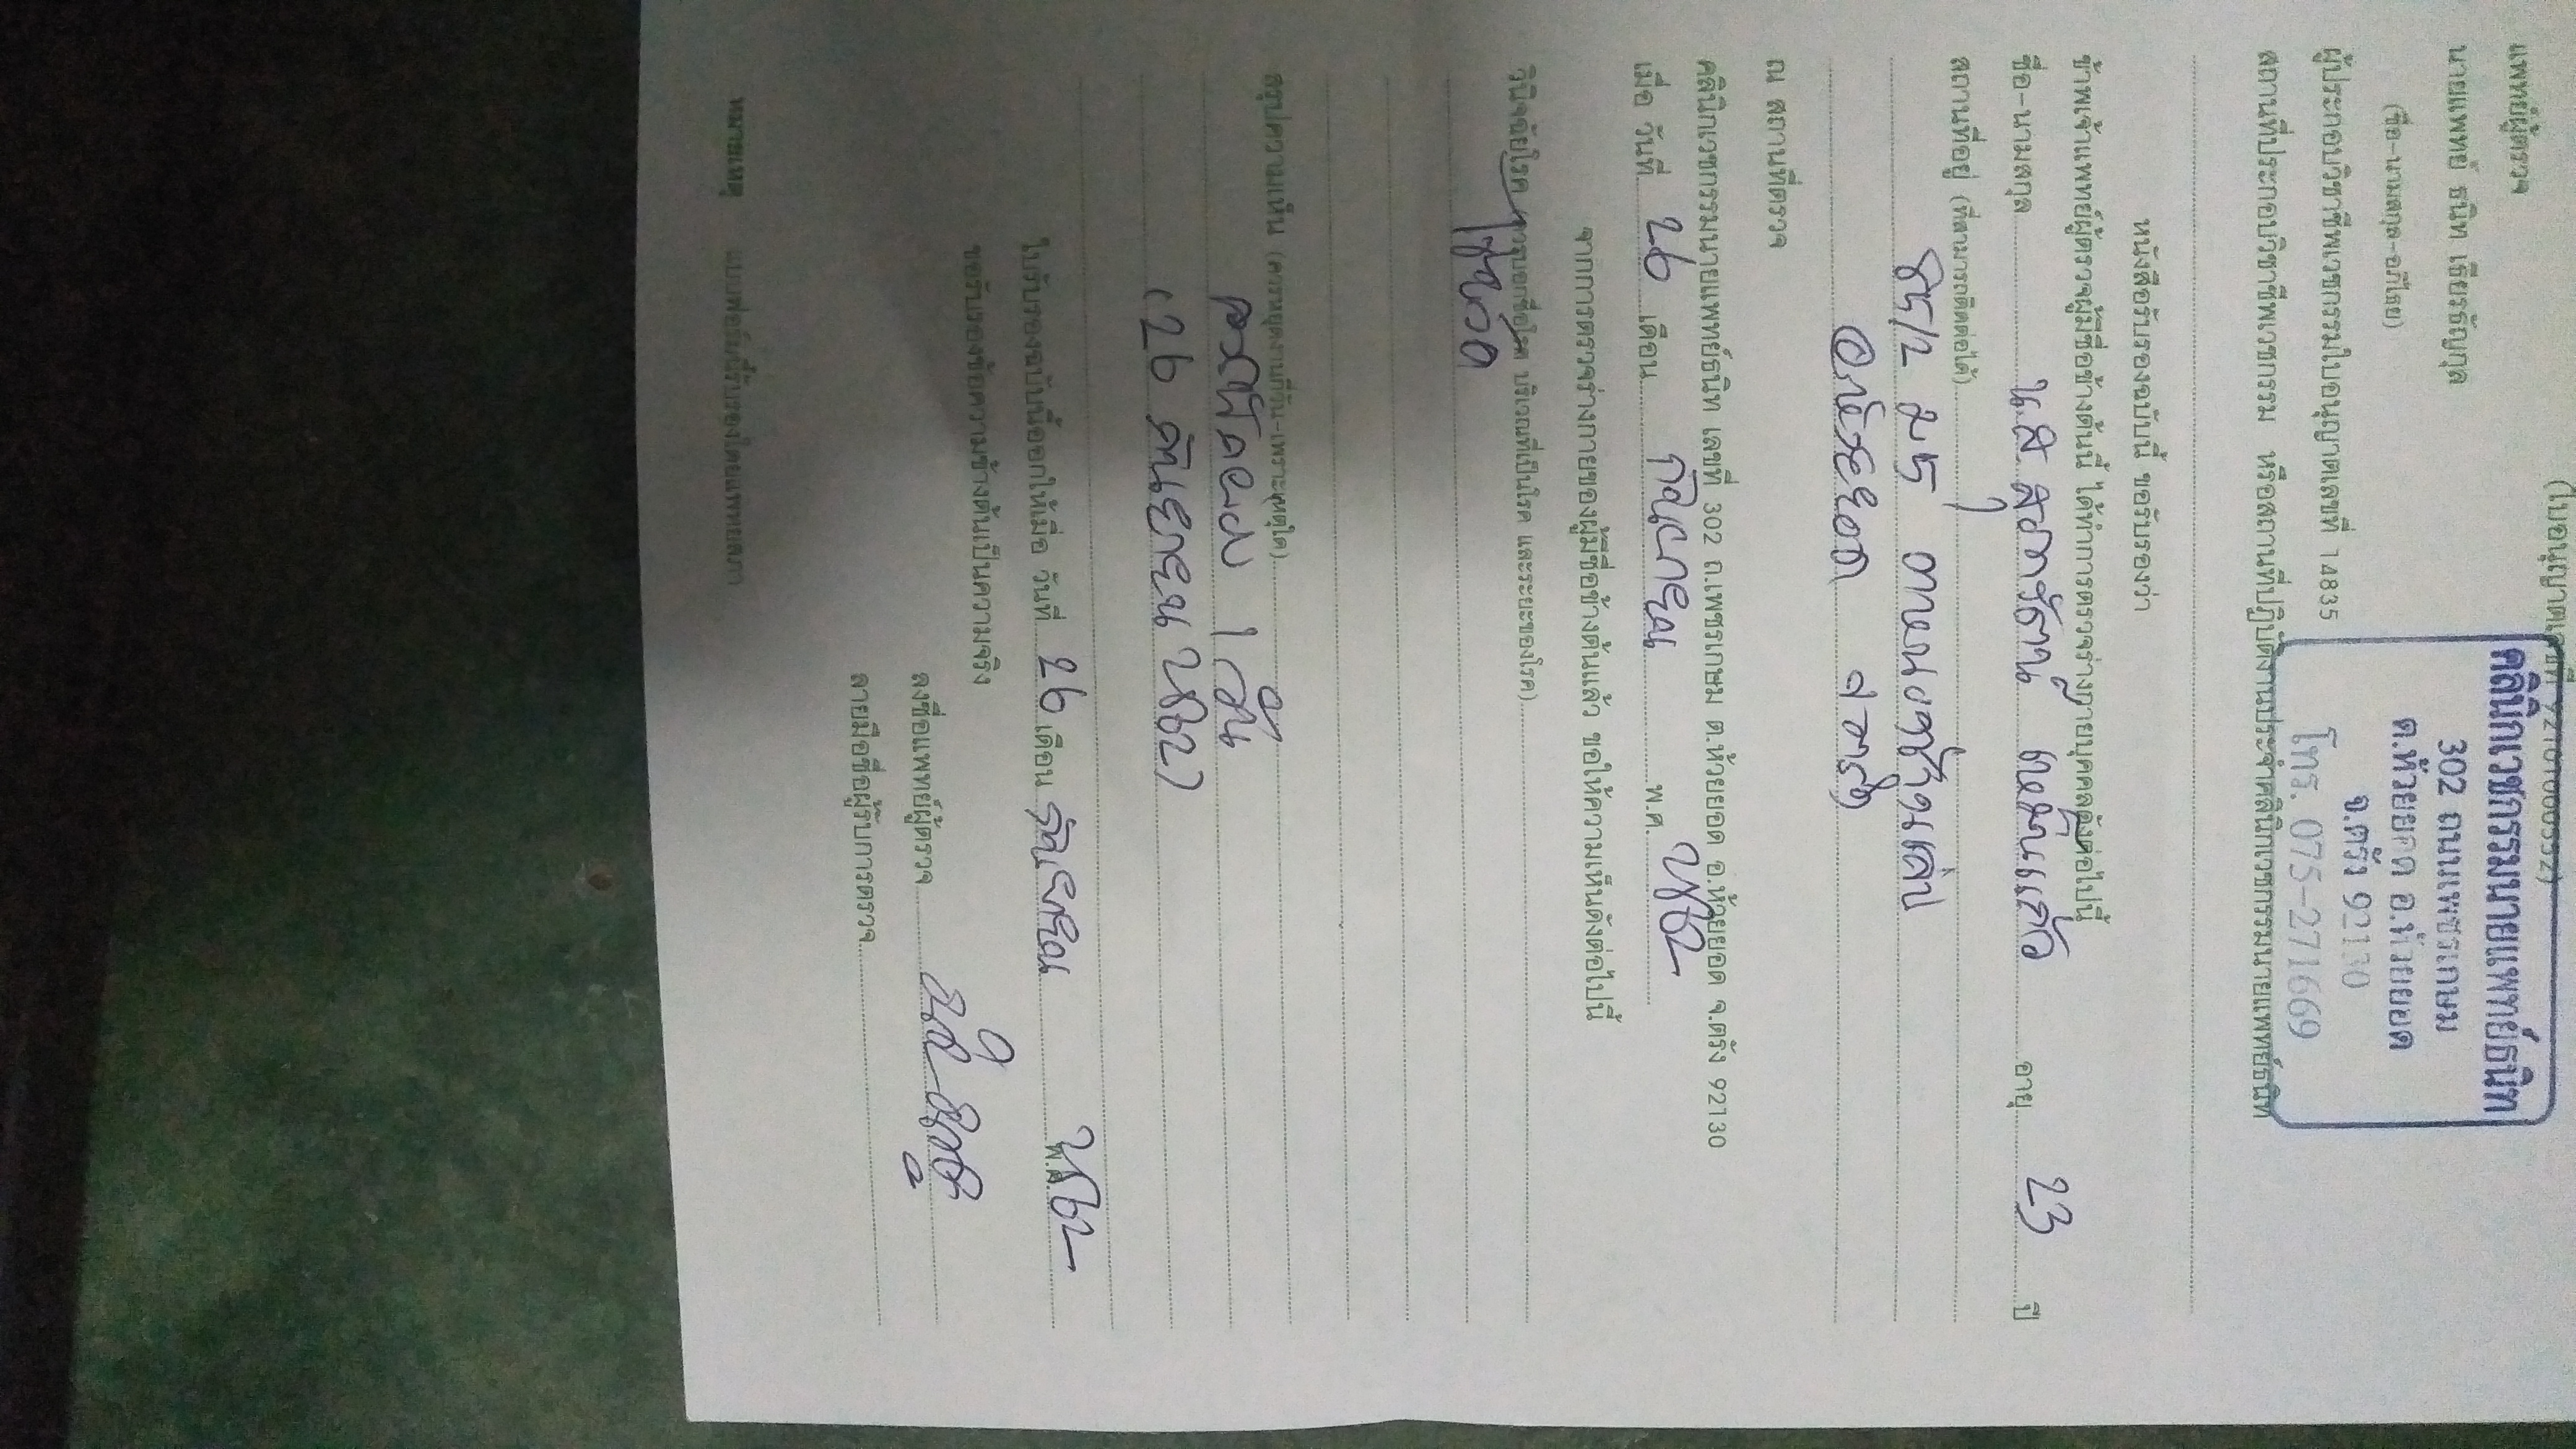 (ใบอนุญาตเลขที่ 92101000552)
คลินิกเวชกรรมนายแพทย์ธนิท
302 ถนนเพชรเกษม
ต.ห้วยยอด อ.ห้วยยอด
จ.ตรัง 92130
โทร. 075-271669
แพทย์ผู้ตรวจ
นายแพทย์ ธนิท เธียรธัญกูล
(ชื่อ-นามสกุล-อภิไธย)
ผู้ประกอบวิชาชีพเวชกรรมใบอนุญาตเลขที่ 14835
สถานที่ประกอบวิชาชีพเวชกรรม หรือสถานที่ปฏิบัติงานประจำคลินิกเวชกรรมนายแพทย์ธนิท
หนังสือรับรองฉบับนี้ ขอรับรองว่า
ข้าพเจ้าแพทย์ผู้ตรวจผู้มีชื่อข้างต้นนี้ ได้ทำการตรวจร่างกายบุคคลดังต่อไปนี้
ชื่อ-นามสกุล น.ส อายุ 23 ปี
สถานที่อยู่ (ที่สามารถติดต่อได้)
ม.5
อ.ห้วยยอด จ.ตรัง
ณ สถานที่ตรวจ
คลินิกเวชกรรมนายแพทย์ธนิท เลขที่ 302 ถ.เพชรเกษม ต.ห้วยยอด อ.ห้วยยอด จ.ตรัง 92130
เมื่อ วันที่ 26 เดือน กันยายน พ.ศ.
จากการตรวจร่างกายของผู้มีชื่อข้างต้นแล้ว ขอให้ความเห็นดังต่อไปนี้
วินิจฉัยโรค (ควรบอกชื่อโรค บริเวณที่เป็นโรค และระยะของโรค)
ไข้หวัด
สรุปความเห็น (ควรหยุดงานกี่วัน-เพราะเหตุใด)
1 วัน
(26 กันยายน
ใบรับรองฉบับนี้ออกให้เมื่อ วันที่ 26 เดือน กันยายน พ.ศ.
ขอรับรองข้อความข้างต้นเป็นความจริง
ลงชื่อแพทย์ผู้ตรวจ
ลายมือชื่อผู้รับการตรวจ
หมายเหตุ แบบฟอร์มนี้รับรองโดยแพทยสภา